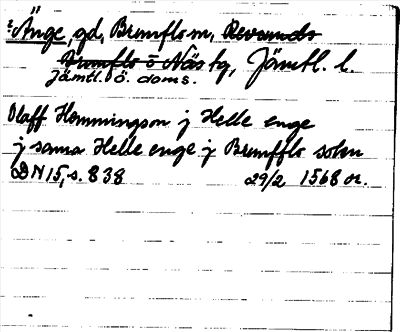 ²Änge, gd, Brunflo sn, Revsunds
Brunflo o Näs tg, Jämtl. l.
Jämtl. ö. doms.
Olaff Hemmingson j Helle enge
j sama Helle enge j Brunfflo sokn
DN 15, s. 838 29/2 1568 or.